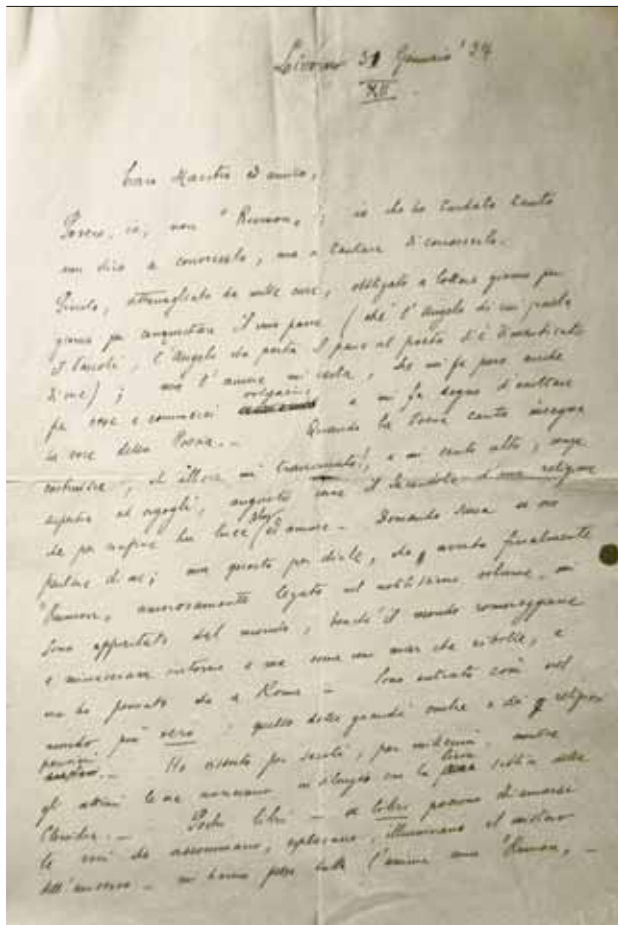 Livorno 31 Gennaio '34
XII
Caro Maestro ed amico,
io, non "Rumon„; io che ho tardato tanto
non dico a conoscerlo, ma a tentare di conoscerlo.
attanagliato da mille cure, obbligato a lottare giorno per
giorno per conquistare il mio pane (chè l'Angelo di cui parla
il Pascoli, l'Angelo che porta il pane al poeta s'è dimenticato
di me); ma l'amore mi resta, che mi fa pure anche
fra cose e commerci volgari e mi fa degno d'ascoltare
la voce della Poesia. - Quando la Poesia canta insegna
costruisce, oh allora mi e mi sento alto,
agli orgogli, augusto come il Sacerdote d'una religione
che per confine ha luce ed amore. - Domando scusa se oso
parlare di me; ma questo per dirle, che avendo finalmente
"Rumon„ amorosamente legato nel nobilissimo volume, mi
sono appartato dal mondo, benché il mondo rumoreggiasse
e minacciasse intorno a me come un mar che ribolle, e
non ho pensato che a Roma - Sono entrato così nel
mondo più vero: quello delle grandi ombre e dei religiosi
pensieri. - Ho vissuto per secoli, per millenni, mentre
gli attimi se ne andavano in silenzio con la sabbia della
Clessidra. - Pochi libri - se libri possono chiamarsi
le voci che assommano, esplorano, illuminano il mistero
dell'universo - mi hanno preso tutta l'anima come "Rumon„ -